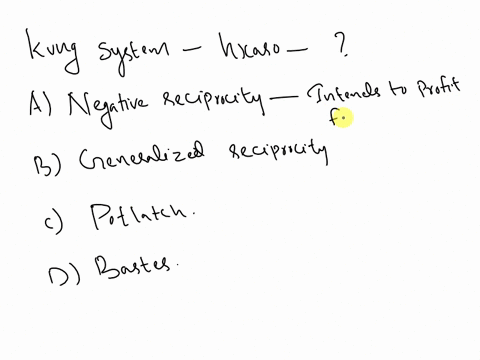 Kung system – hxaro – ?
A) Negative reciprocity — Intends to Profit
f
B) Generalized reciprocity
C) Potlatch.
D) Bastes.